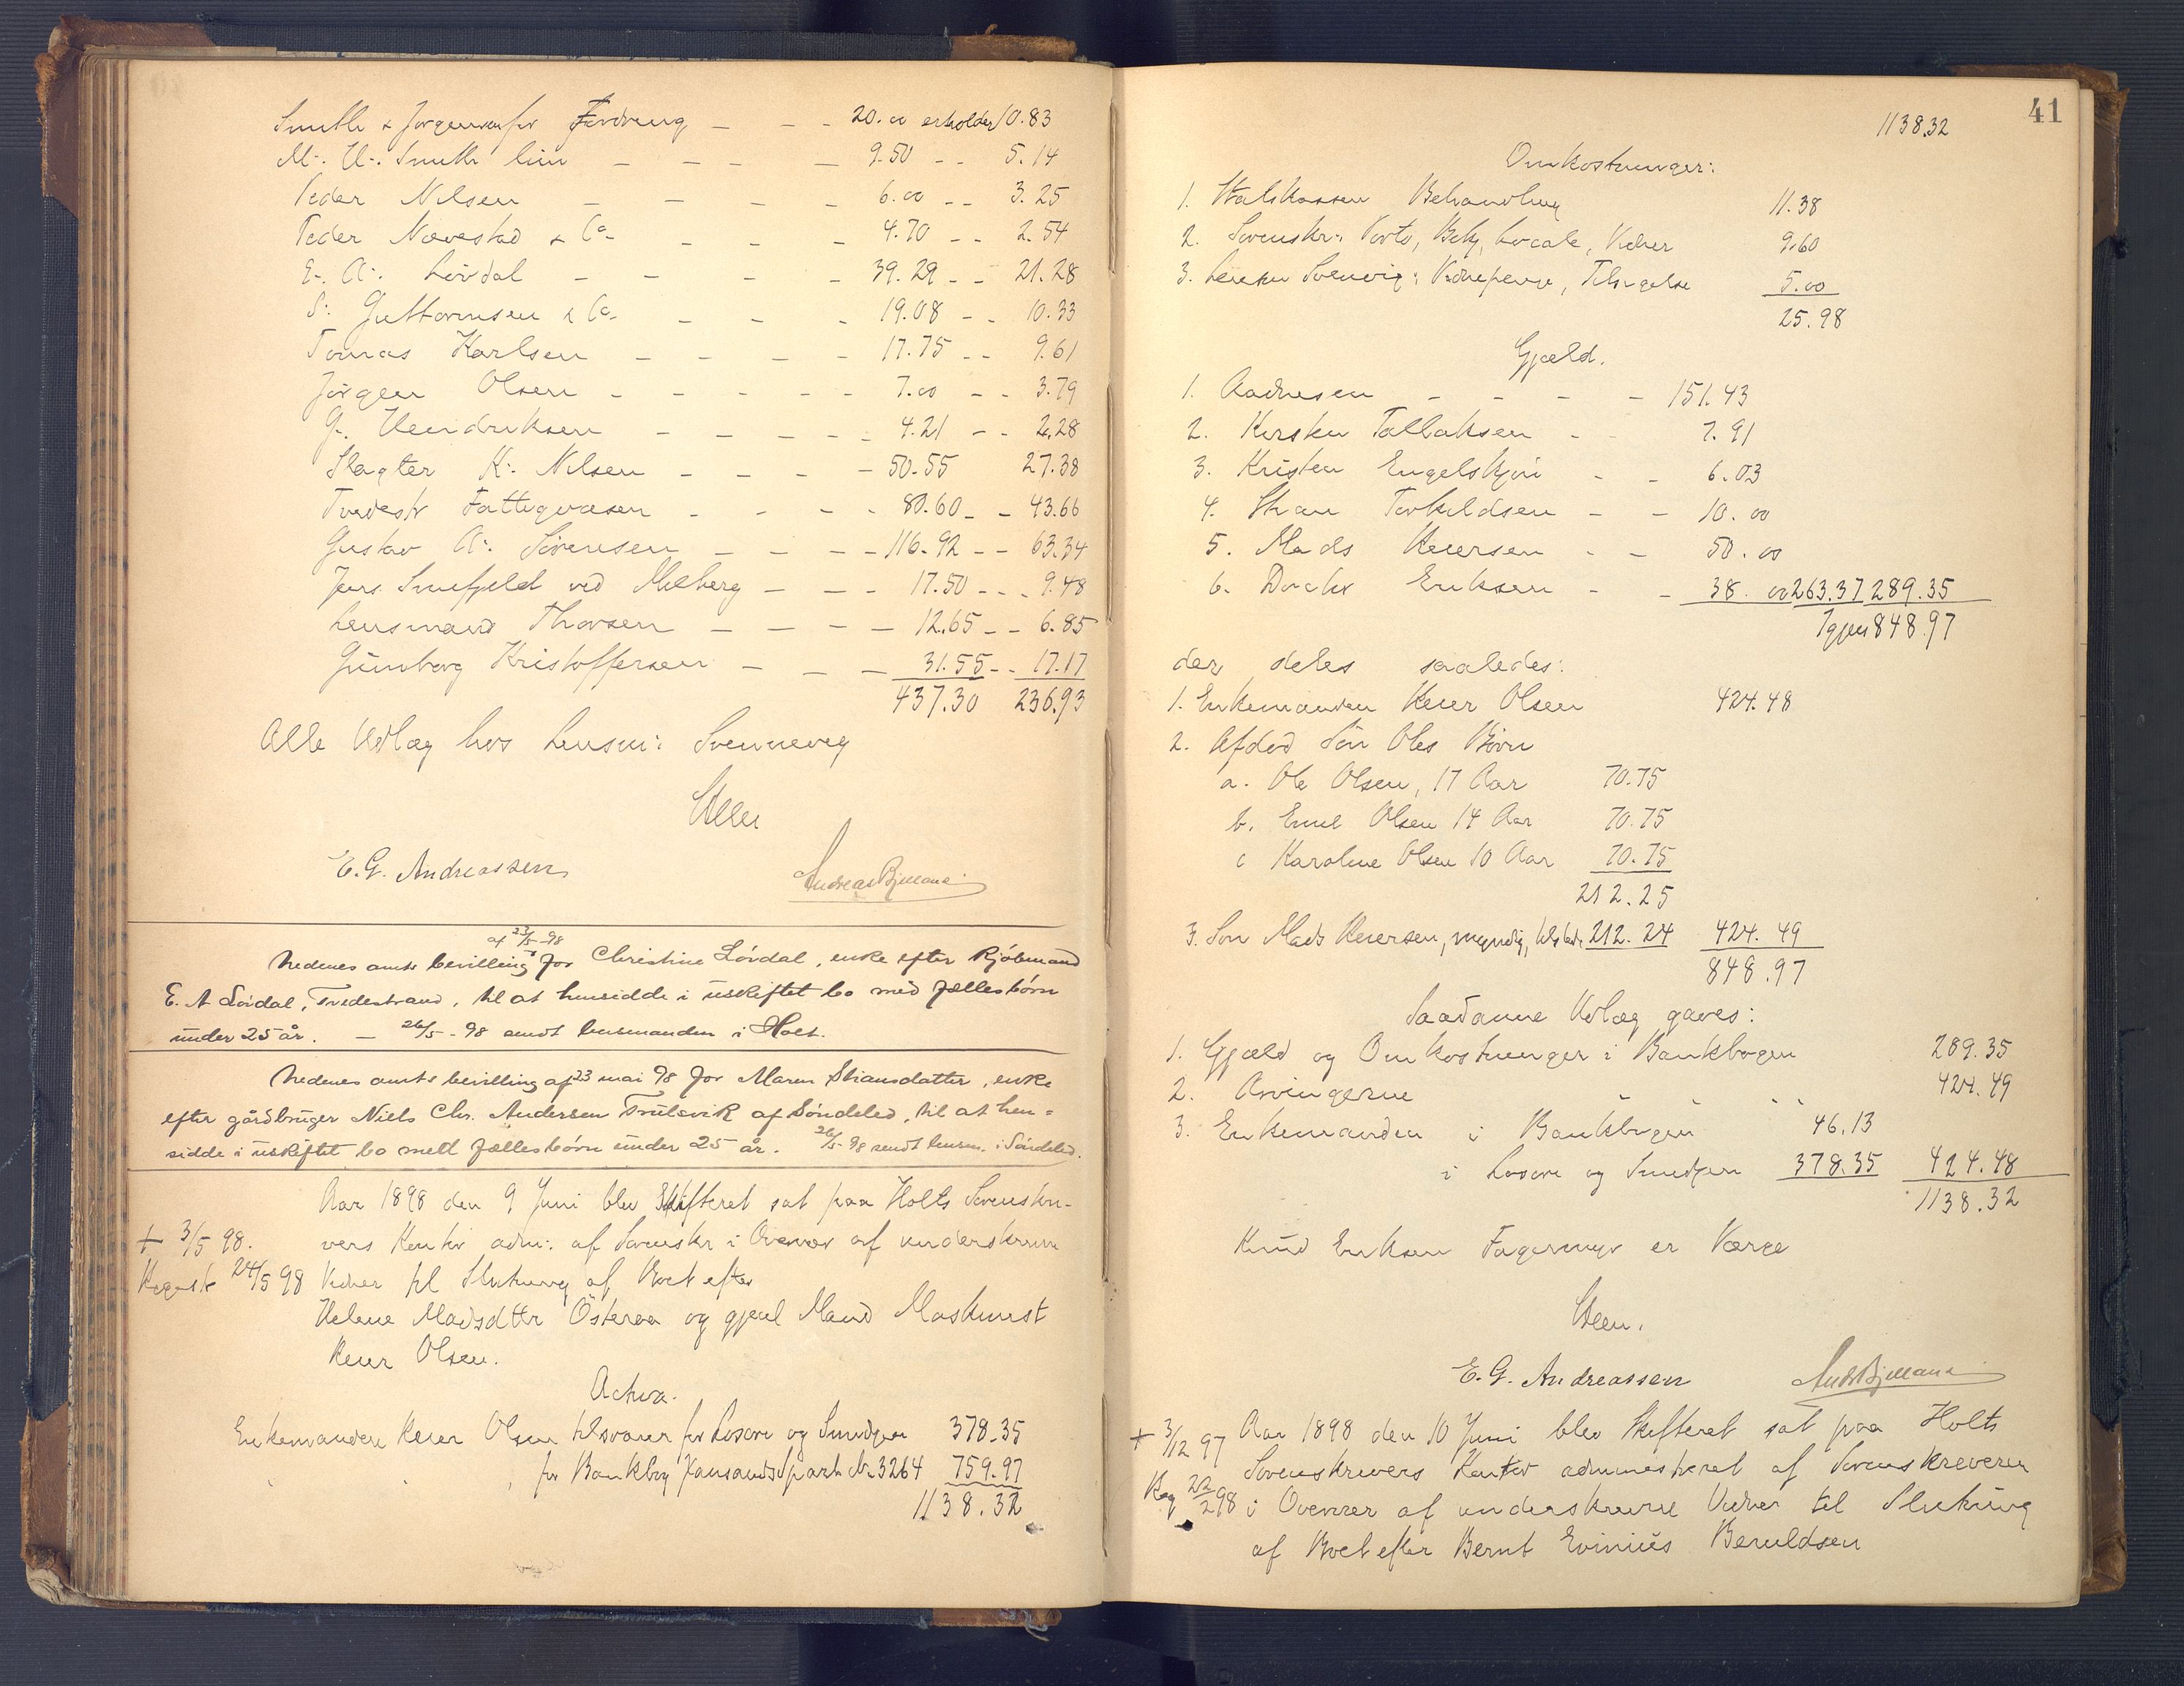 Smith & Jørgensen for Fordring - - - 20.00 erholder 10.83
M. U. Smith lim - - - - 9.50 - - 5.14
Peder Nilsen - - - - 6.00 - - 3.25
Peder Nævestad & Co - - - 4.70 - - 2.54
E. A. Løvdal - - - - 39.29 - - 21.28
S. Guttormsen & Co - - - 19.08 - - 10.33
Tomas Karlsen - - - - 17.75 - - 9.61
Jørgen Olsen - - - - - 7.00 - - 3.79
G. Hendriksen - - - - - 4.21 - - 2.28
Slagter K. Nilsen - - - - 50.55 27.38
Tvedestr Fattigvæsen - - - - 80.60 - - 43.66
Gustav A. Sørensen - - - - 116.92 - - 63.34
Jens Smefjeld ved Melberg - - - 17.50 - - - 9.48
Lensmand Thorsen - - - - 12.65 - - 6.85
Gunborg Kristoffersen - - - 31.55 - - 17.17
437.30 236.93
Alle Udlæg hos Lensm: Svenneveg
E. G. Andreassen
af 23/5-98
Nedenes amts bevilling for Christine Løvdal, enke efter Kjøbmand
E. A Løvdal, Tvedestrand, til at hensidde i uskiftet bo med fællesbørn
under 25 år. — 26/5-98 sendt lensmanden i Holt.
Nedenes amts bevilling af 23 mai 98 for Maren Stiansdatter, enke
efter gårdbruger Niels Chr. Andersen Trulsvik af Søndeled, til at hen=
sidde i uskiftet bo med fællesbørn under 25 år. 26/5-98 sendt lensm. i Søndeled.
Aar 1898 den 9 Juni blev Skifteret sat paa Holts Sorenskri-
+ 3/5 98. vers Kontor adm: af Sorenskr i Overvær af underskrevne
24/5 98 Vidner til Slutning af Boet efter
Helene Madsdttr Østeraa og gjenl Mand Maskinist
Reier Olsen.
Activa.
Enkemanden Reier Olsen tilsvarer for Løsøre og Smedjen 378.35
for Bankbog Xansands Spark Nr 3264 759.97
1138.32
41
1138.32
Omkostninger:
1. Statskassen Behandling 11.38
2. Sorenskr: Porto, Bekj, Locale, Vidner 9.60
3. Lensm Svenevig: Vidnepenge, Tilsigelse 5.00
25.98
Gjæld.
1. Aadnesen - - - - 151.43
2. Kirsten Tallaksen - 7.91
3. Kristen Engelskjøn - - 6.03
4. Stian Torkildsen - - 10.00
5. Mads Reiersen - - 50.00
6. Doctor Eriksen - - 38.00 263.37 289.35
Igjen 848.97
der deles saaledes:
1. Enkemanden Reier Olsen 424.48
2. Afdød Søn Oles Børn
a. Ole Olsen, 17 Aar 70.75
b. Emil Olsen 14 Aar 70.75
c Karoline Olsen 10 Aar 70.75
212.25
3. Søn Mads Reiersen, myndig, tilstede 212.24 424.49
848.97
Saadanne Udlæg gaves:
1. Gjæld og Omkostninger i Bankbogen 289.35
2. Arvingerne " " " 424.49
3. Enkemanden i Bankbogen 46.13
i Løsøre og Smedjen 378.35 424.48
1138.32
Knud Eriksen Fagermyr er Værge
E. G. Andreassen
+ 3/12 97 Aar 1898 den 10 Juni blev Skifteret sat paa Holts
Sorenskrivers Kontor administreret af Sorenskriveren
Reg 22/2 98 i Overvær af underskrevne Vidner til Slutning
af Boet efter Bernt Evinius Beruldsen